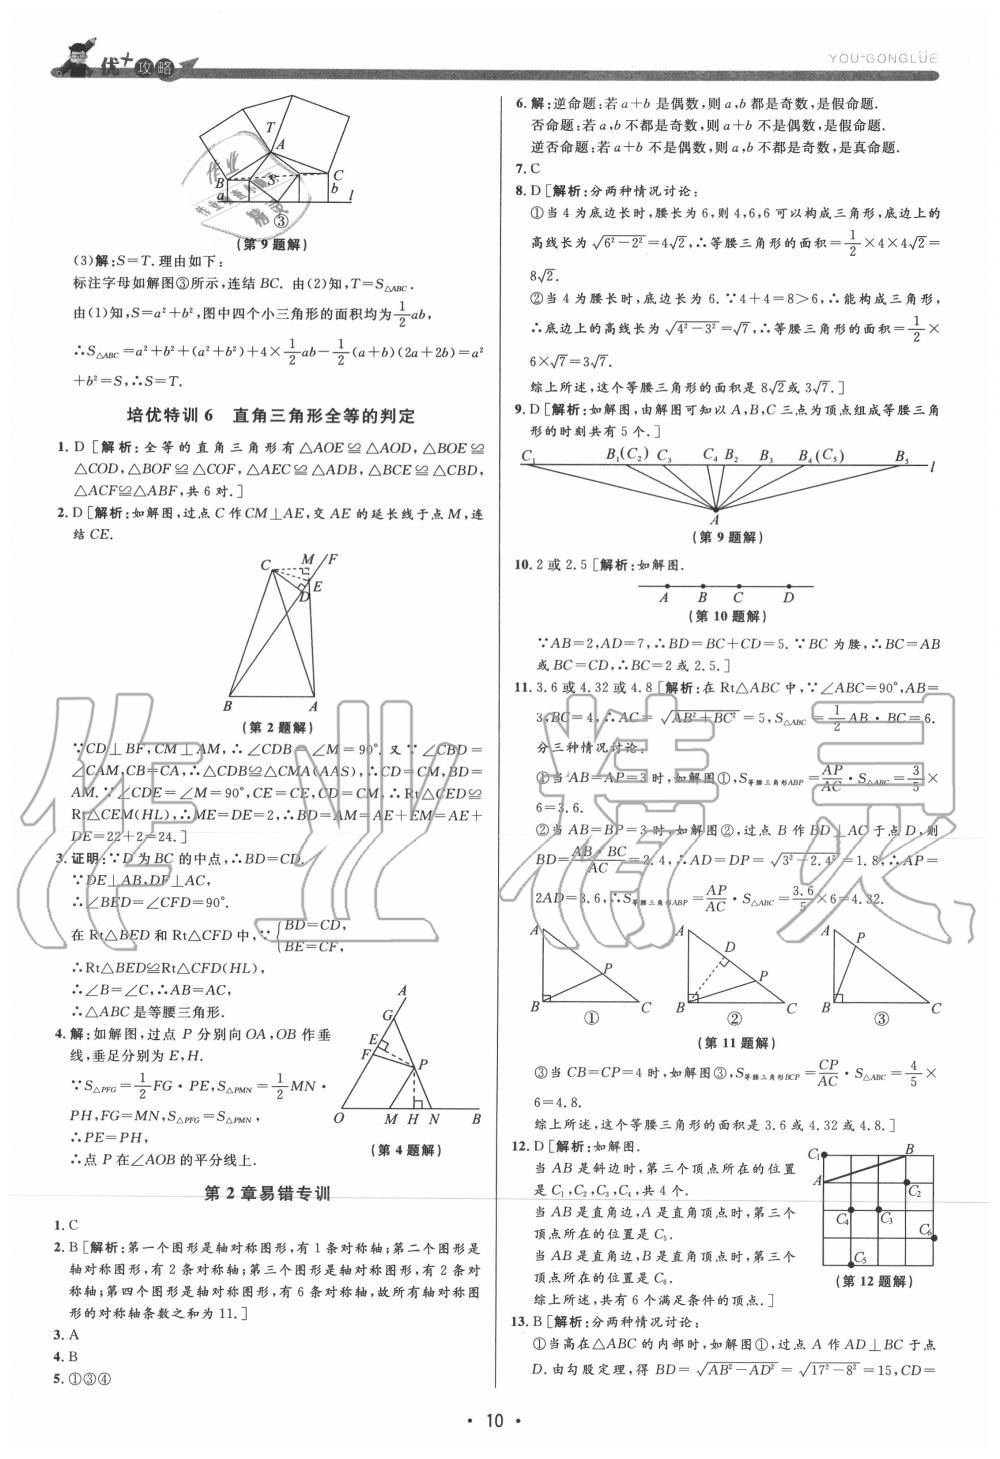 优+攻略
YOU+GONGLÜE
T
A
B
C
S
a
b
l
③
(第9题解)
(3)解:S=T.理由如下:
标注字母如解图③所示,连结BC. 由(2)知,T=S△ABC.
由(1)知,S=a²+b²,图中四个小三角形的面积均为1/2ab,
∴S△ABC=a²+b²+(a²+b²)+4×1/2ab-1/2(a+b)(2a+2b)=a²
+b²=S,∴S=T.
培优特训6 直角三角形全等的判定
1. D[解析:全等的直角三角形有△AOE≌△AOD,△BOE≌
△COD,△BOF≌△COF,△AEC≌△ADB,△BCE≌△CBD,
△ACF≌△ABF,共6对.]
2. D[解析:如解图,过点C作CM⊥AE,交AE的延长线于点M,连
结CE.
C
M
F
E
D
B
A
(第2题解)
∵CD⊥BF,CM⊥AM,∴∠CDB=∠M=90°.又∵∠CBD=
∠CAM,CB=CA,∴△CDB≌△CMA(AAS),∴CD=CM,BD=
AM.∵∠CDE=∠M=90°,CE=CE,CD=CM,∴Rt△CED≌
Rt△CEM(HL),∴ME=DE=2,∴BD=AM=AE+EM=AE+
DE=22+2=24.]
3. 证明:∵D为BC的中点,∴BD=CD.
∵DE⊥AB,DF⊥AC,
∴∠BED=∠CFD=90°.
在Rt△BED和Rt△CFD中,∵{BD=CD,
BE=CF,
∴Rt△BED≌Rt△CFD(HL),
∴∠B=∠C,∴AB=AC,
∴△ABC是等腰三角形.
4. 解:如解图,过点P分别向OA,OB作垂
线,垂足分别为E,H.
∵S△PFG=1/2FG·PE,S△PMN=1/2MN·
PH,FG=MN,S△PFG=S△PMN,
∴PE=PH,
∴点P在∠AOB的平分线上.
A
G
E
F
P
O
M
H
N
B
(第4题解)
第2章易错专训
1. C
2. B[解析:第一个图形是轴对称图形,有1条对称轴;第二个图形是
轴对称图形,有2条对称轴;第三个图形是轴对称图形,有2条对
称轴;第四个图形是轴对称图形,有6条对称轴,故所有轴对称图
形的对称轴条数之和为11.]
3. A
4. B
5. ①③④
6. 解:逆命题:若a+b是偶数,则a,b都是奇数,是假命题.
否命题:若a,b不都是奇数,则a+b不是偶数,是假命题.
逆否命题:若a+b不是偶数,则a,b不都是奇数,是真命题.
7. C
8. D[解析:分两种情况讨论:
①当4为底边长时,腰长为6,则4,6,6可以构成三角形,底边上的
高线长为√(6²-2²)=4√2,∴等腰三角形的面积=1/2×4×4√2=
8√2.
②当4为腰长时,底边长为6.∵4+4=8>6,∴能构成三角形,
∴底边上的高线长为√(4²-3²)=√7,∴等腰三角形的面积=1/2×
6×√7=3√7.
综上所述,这个等腰三角形的面积是8√2或3√7.]
9. D[解析:如解图,由解图可知以A,B,C三点为顶点组成等腰三角
形的时刻共有5个.]
C₁ B₁(C₂) C₃ C₄ B₂ B₃ B₄(C₅) B₅ l
A
(第9题解)
10. 2或2.5[解析:如解图.
A B C D
(第10题解)
∵AB=2,AD=7,∴BD=BC+CD=5.∵BC为腰,∴BC=AB
或BC=CD,∴BC=2或2.5.]
11. 3.6或4.32或4.8[解析:在Rt△ABC中,∵∠ABC=90°,AB=
3,BC=4,∴AC=√(AB²+BC²)=5,S△ABC=1/2AB·BC=6.
分三种情况讨论:
①当AB=AP=3时,如解图①,S等腰三角形ABP=AP/AC·S△ABC=3/5×
6=3.6.
②当AB=BP=3时,如解图②,过点B作BD⊥AC于点D,则
BD=AB·BC/AC=2.4,∴AD=DP=√(3²-2.4²)=1.8,∴AP=
2AD=3.6,∴S等腰三角形ABP=AP/AC·S△ABC=3.6/5×6=4.32.
A P B C ①
A D P B C ②
A P B C ③
(第11题解)
③当CB=CP=4时,如解图③,S等腰三角形BCP=CP/AC·S△ABC=4/5×
6=4.8.
综上所述,这个等腰三角形的面积是3.6或4.32或4.8.]
12. D[解析:如解图.
当AB是斜边时,第三个顶点所在的位置
是C₁,C₂,C₃,C₄,共4个.
当AB是直角边,A是直角顶点时,第三个
顶点所在的位置是C₅.
当AB是直角边,B是直角顶点时,第三个
顶点所在的位置是C₆.
综上所述,共有6个满足条件的顶点.]
C₁
B
A
C₂
C₄
C₃
C₆
C₅
(第12题解)
13. B[解析:分两种情况讨论:
①当高在△ABC的内部时,如解图①,过点A作AD⊥BC于点
D.由勾股定理,得BD=√(AB²-AD²)=√(17²-8²)=15,CD=
· 10 ·
作业精灵